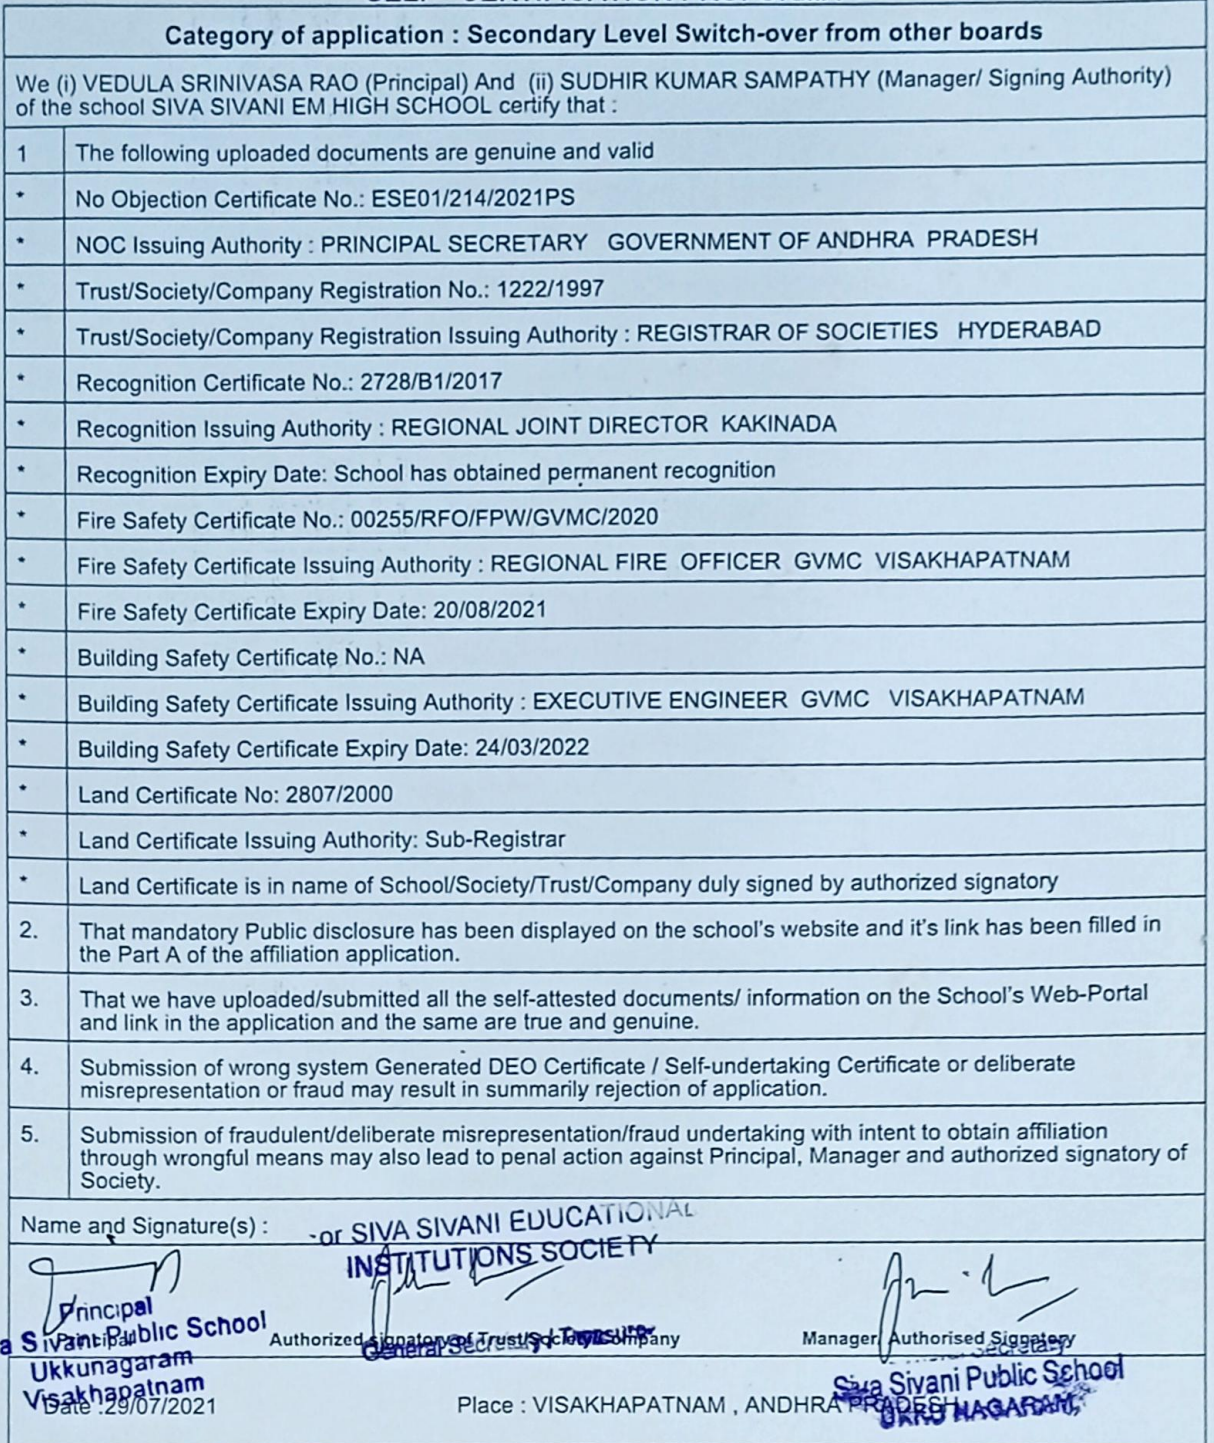 Category of application : Secondary Level Switch-over from other boards
We (i) VEDULA SRINIVASA RAO (Principal) And (ii) SUDHIR KUMAR SAMPATHY (Manager/ Signing Authority)
of the school SIVA SIVANI EM HIGH SCHOOL certify that :
1 The following uploaded documents are genuine and valid
* No Objection Certificate No.: ESE01/214/2021PS
* NOC Issuing Authority : PRINCIPAL SECRETARY GOVERNMENT OF ANDHRA PRADESH
* Trust/Society/Company Registration No.: 1222/1997
* Trust/Society/Company Registration Issuing Authority : REGISTRAR OF SOCIETIES HYDERABAD
* Recognition Certificate No.: 2728/B1/2017
* Recognition Issuing Authority : REGIONAL JOINT DIRECTOR KAKINADA
* Recognition Expiry Date: School has obtained permanent recognition
* Fire Safety Certificate No.: 00255/RFO/FPW/GVMC/2020
* Fire Safety Certificate Issuing Authority : REGIONAL FIRE OFFICER GVMC VISAKHAPATNAM
* Fire Safety Certificate Expiry Date: 20/08/2021
* Building Safety Certificate No.: NA
* Building Safety Certificate Issuing Authority : EXECUTIVE ENGINEER GVMC VISAKHAPATNAM
* Building Safety Certificate Expiry Date: 24/03/2022
* Land Certificate No: 2807/2000
* Land Certificate Issuing Authority: Sub-Registrar
* Land Certificate is in name of School/Society/Trust/Company duly signed by authorized signatory
2. That mandatory Public disclosure has been displayed on the school's website and it's link has been filled in
the Part A of the affiliation application.
3. That we have uploaded/submitted all the self-attested documents/ information on the School's Web-Portal
and link in the application and the same are true and genuine.
4. Submission of wrong system Generated DEO Certificate / Self-undertaking Certificate or deliberate
misrepresentation or fraud may result in summarily rejection of application.
5. Submission of fraudulent/deliberate misrepresentation/fraud undertaking with intent to obtain affiliation
through wrongful means may also lead to penal action against Principal, Manager and authorized signatory of
Society.
Name and Signature(s) :
-or SIVA SIVANI EDUCATIONAL
INSTITUTIONS SOCIETY
Principal
a Sivani Public School
Principal
Ukkunagaram
Visakhapatnam
Authorized signatory of Trust/Society/Company
General Secretary
Manager/ Authorised Signatory
Secretary
Siva Sivani Public School
UKKU NAGARAM,
Date :29/07/2021
Place : VISAKHAPATNAM , ANDHRA PRADESH